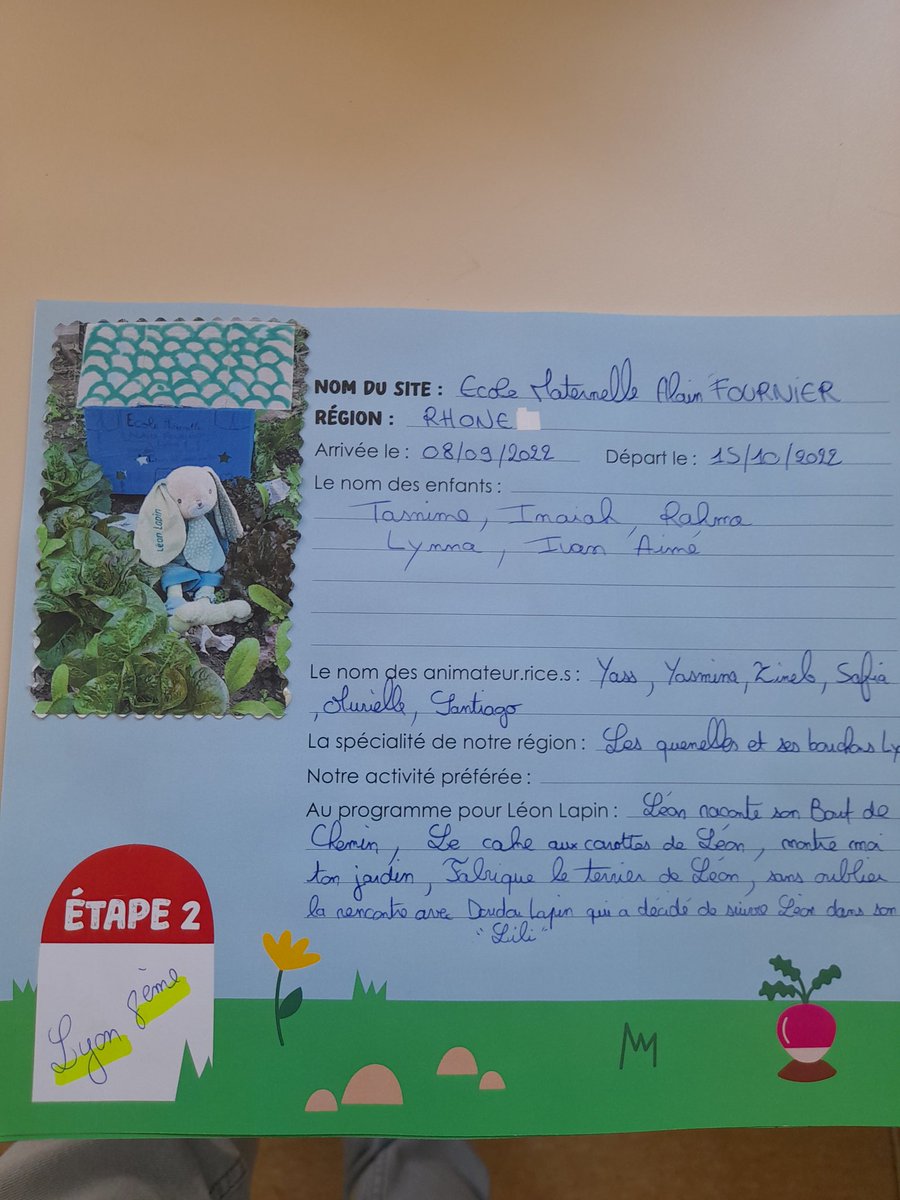 NOM DU SITE : Ecole Maternelle Alain FOURNIER
RÉGION : RHONE
Arrivée le : 08/09/2022 Départ le : 15/10/2022
Le nom des enfants :
Tasnime, Inaiah, Rahma
Lynna, Ivan Aimé
Le nom des animateur.rice.s : Yass, Yasmina, Zineb, Safia
, Murielle, Santiago
La spécialité de notre région : Les quenelles et ses bouchons Ly
Notre activité préférée :
Au programme pour Léon Lapin : Léon raconte son Bout de
Chemin, Le cake aux carottes de Léon, montre moi
ton jardin, Fabrique le terrier de Léon, sans oublier
la rencontre avec Doudou Lapin qui a décidé de suivre Léon dans son
"Lili"
Ecole
Léon Lapin
ÉTAPE 2
Lyon 8ème